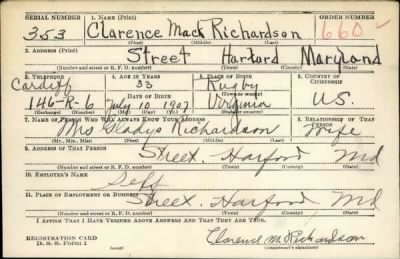 SERIAL NUMBER 1. NAME (Print) ORDER NUMBER
353 Clarence Mack Richardson 660
(First) (Middle) (Last)
2. ADDRESS (Print)
Street Harford Maryland
(Number and street or R. F. D. number) (Town) (County) (State)
3. TELEPHONE 4. AGE IN YEARS 5. PLACE OF BIRTH 6. COUNTRY OF CITIZENSHIP
Cardiff 33 Rugby
DATE OF BIRTH (Town or county)
146-R-6 July 10 1907 Virginia U.S.
(Exchange) (Number) (Mo.) (Day) (Yr.) (State or country)
7. NAME OF PERSON WHO WILL ALWAYS KNOW YOUR ADDRESS 8. RELATIONSHIP OF THAT PERSON
Mrs Gladys Richardson Wife
(Mr., Mrs., Miss) (First) (Middle) (Last)
9. ADDRESS OF THAT PERSON
Street. Harford Md
(Number and street or R. F. D. number) (Town) (County) (State)
10. EMPLOYER'S NAME
Self
11. PLACE OF EMPLOYMENT OR BUSINESS
Street. Harford Md
(Number and street or R. F. D. number) (Town) (County) (State)
I AFFIRM THAT I HAVE VERIFIED ABOVE ANSWERS AND THAT THEY ARE TRUE.
REGISTRATION CARD
D. S. S. Form 1 Clarence M. Richardson
(Registrant's signature)